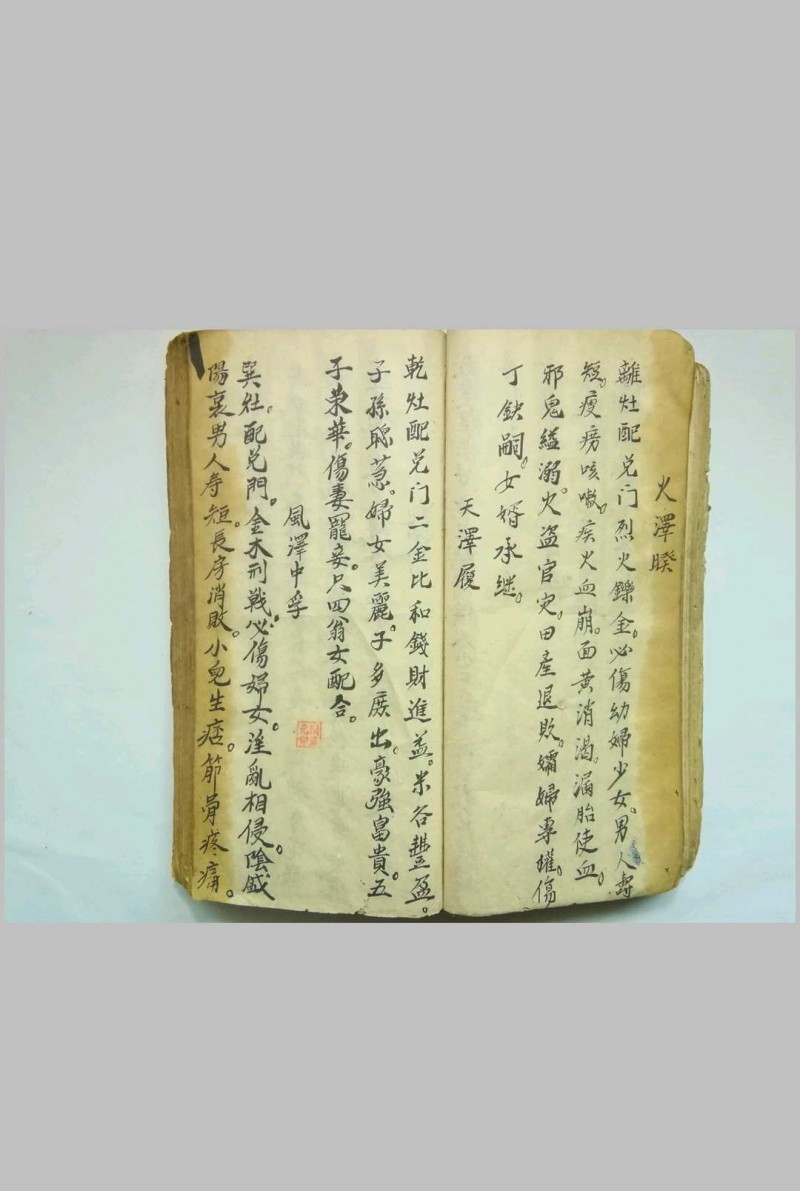 火澤睽
離灶配兑门烈火鑠金。必傷幼婦少女。男人壽
短。瘦痨咳嗽。疾火血崩。面黄消渴。漏胎使血。
邪鬼縊溺。火盗官灾。田產退敗。孀婦專權。傷
丁缺嗣。女婿承继。
天澤履
乾灶配兑门二金比和錢財進益。米谷豐盈。
子孫聪慧。婦女美麗。子多庶出。豪強富貴。五
子荣華。傷妻寵妾。尺四翁女配合。
風澤中孚
巽灶。配兑門。金木刑戰。必傷婦女。淫亂相侵。陰盛
陽衰男人寿短。長房消敗。小兒生痞。筋骨疼痛。